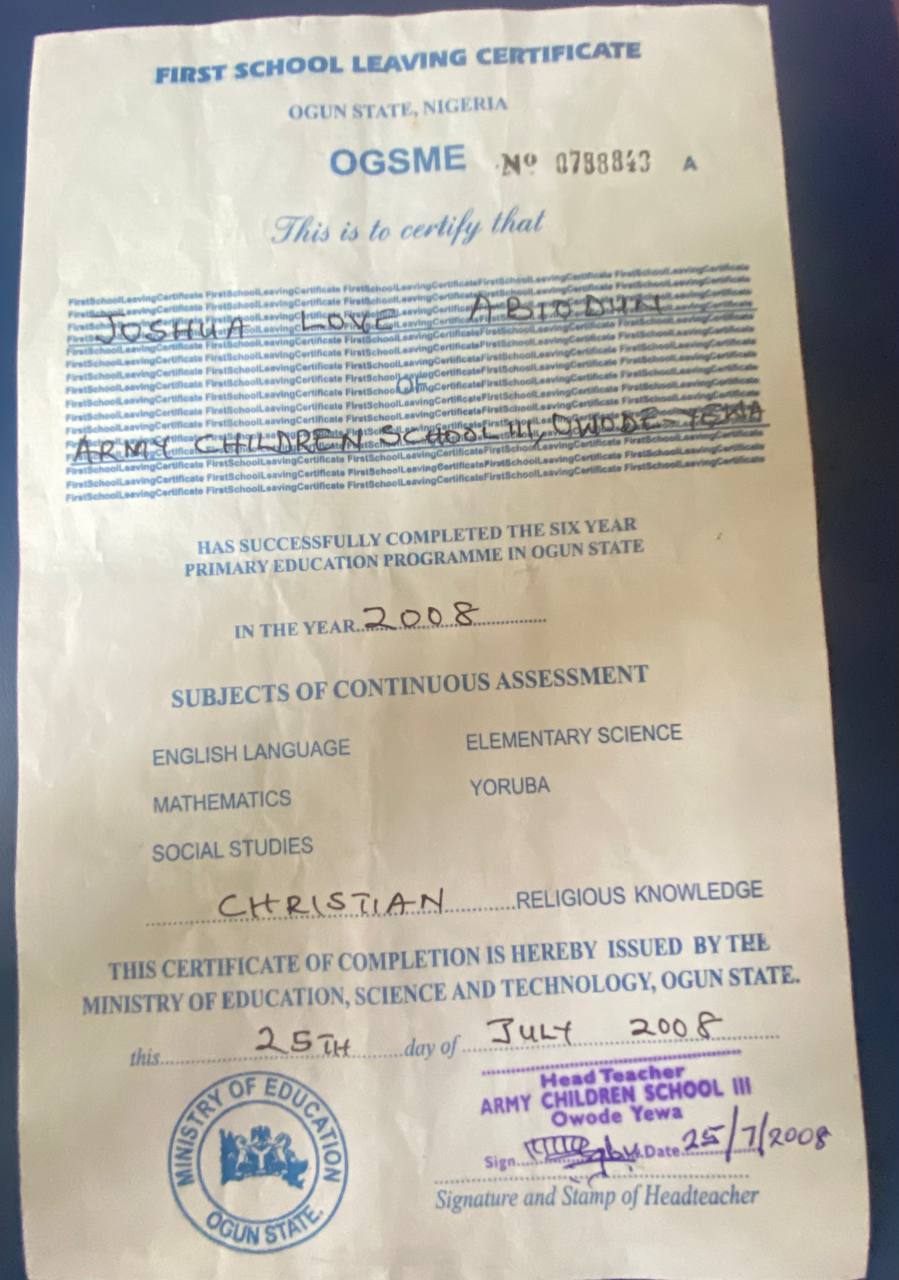 FIRST SCHOOL LEAVING CERTIFICATE
OGUN STATE, NIGERIA
OGSME Nº 0788843 A
This is to certify that
FirstSchoolLeavingCertificate FirstSchoolLeavingCertificate FirstSchoolLeavingCertificateFirstSchoolLeavingCertificate FirstSchoolLeavingCertificate
JOSHUA LOVE ABIODUN
OF
ARMY CHILDREN SCHOOL III, OWODE-YEWA
HAS SUCCESSFULLY COMPLETED THE SIX YEAR
PRIMARY EDUCATION PROGRAMME IN OGUN STATE
IN THE YEAR 2008
SUBJECTS OF CONTINUOUS ASSESSMENT
ENGLISH LANGUAGE ELEMENTARY SCIENCE
MATHEMATICS YORUBA
SOCIAL STUDIES
CHRISTIAN RELIGIOUS KNOWLEDGE
THIS CERTIFICATE OF COMPLETION IS HEREBY ISSUED BY THE
MINISTRY OF EDUCATION, SCIENCE AND TECHNOLOGY, OGUN STATE.
this 25TH day of JULY 2008
MINISTRY OF EDUCATION
OGUN STATE.
Head Teacher
ARMY CHILDREN SCHOOL III
Owode Yewa
Sign. Date 25/7/2008
Signature and Stamp of Headteacher